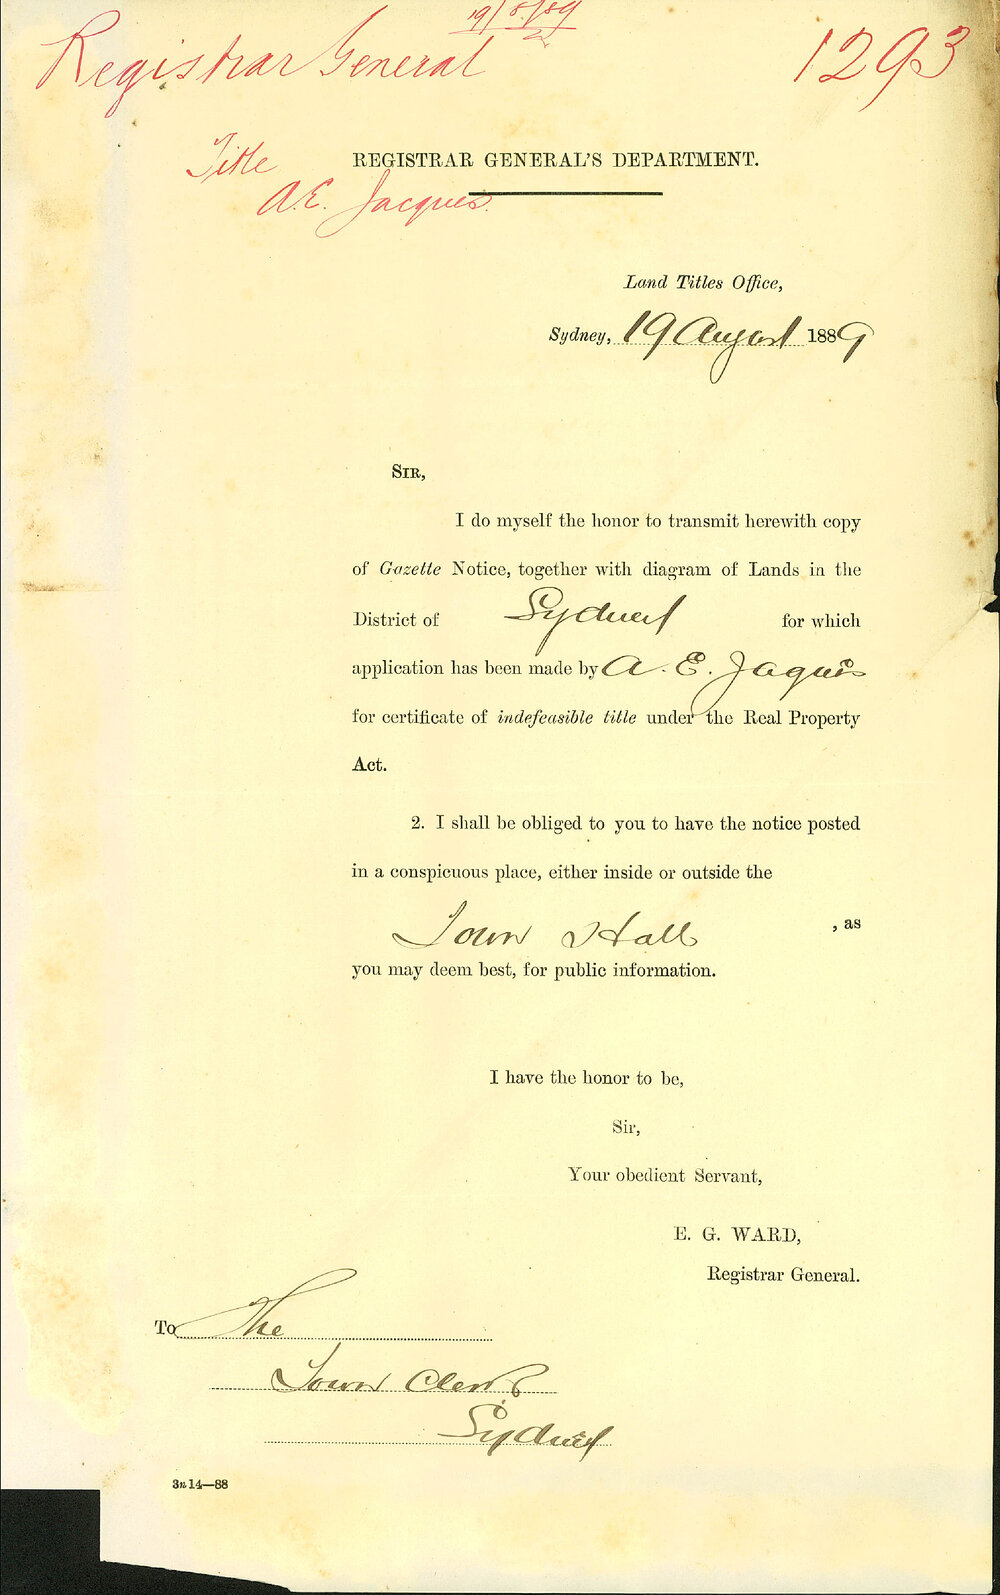 19/8/89
2
Registrar General
1293
Title
A.E. Jacques.
REGISTRAR GENERAL'S DEPARTMENT.
Land Titles Office,
Sydney, 19 August 1889
SIR,
I do myself the honor to transmit herewith copy
of Gazette Notice, together with diagram of Lands in the
District of Sydney for which
application has been made by A. E. Jaques
for certificate of indefeasible title under the Real Property
Act.
2. I shall be obliged to you to have the notice posted
in a conspicuous place, either inside or outside the
Town Hall , as
you may deem best, for public information.
I have the honor to be,
Sir,
Your obedient Servant,
E. G. WARD,
Registrar General.
To The
Town Clerk
Sydney
3n14—88